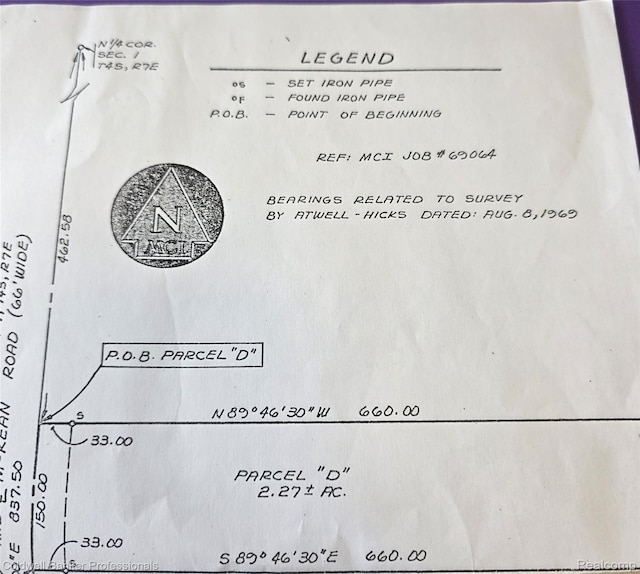 N 1/4 COR.
SEC. 1
T4S, R7E
LEGEND
OS - SET IRON PIPE
OF - FOUND IRON PIPE
P.O.B. - POINT OF BEGINNING
REF: MCI JOB # 69064
BEARINGS RELATED TO SURVEY
BY ATWELL-HICKS DATED: AUG. 8, 1969
N
MCI
462.58
T4S, R7E
ROAD (66' WIDE)
P.O.B. PARCEL "D"
N 89° 46' 30" W 660.00
S
33.00
PARCEL "D"
2.27± AC.
150.00
837.50
33.00
S
S 89° 46' 30" E 660.00
Coldwell Banker Professionals
Realcomp